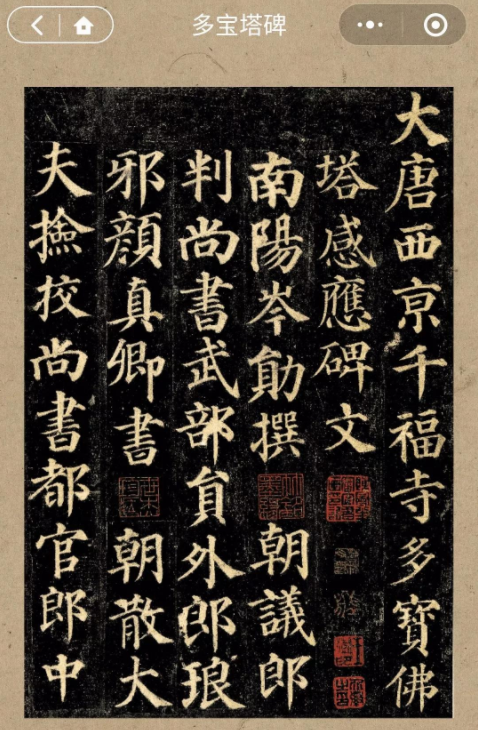 多宝塔碑
大唐西京千福寺多寶佛
塔感應碑文
南陽岑勛撰 朝議郎
判尚書武部員外郎琅
邪顏真卿書 朝散大
夫撿校尚書都官郎中